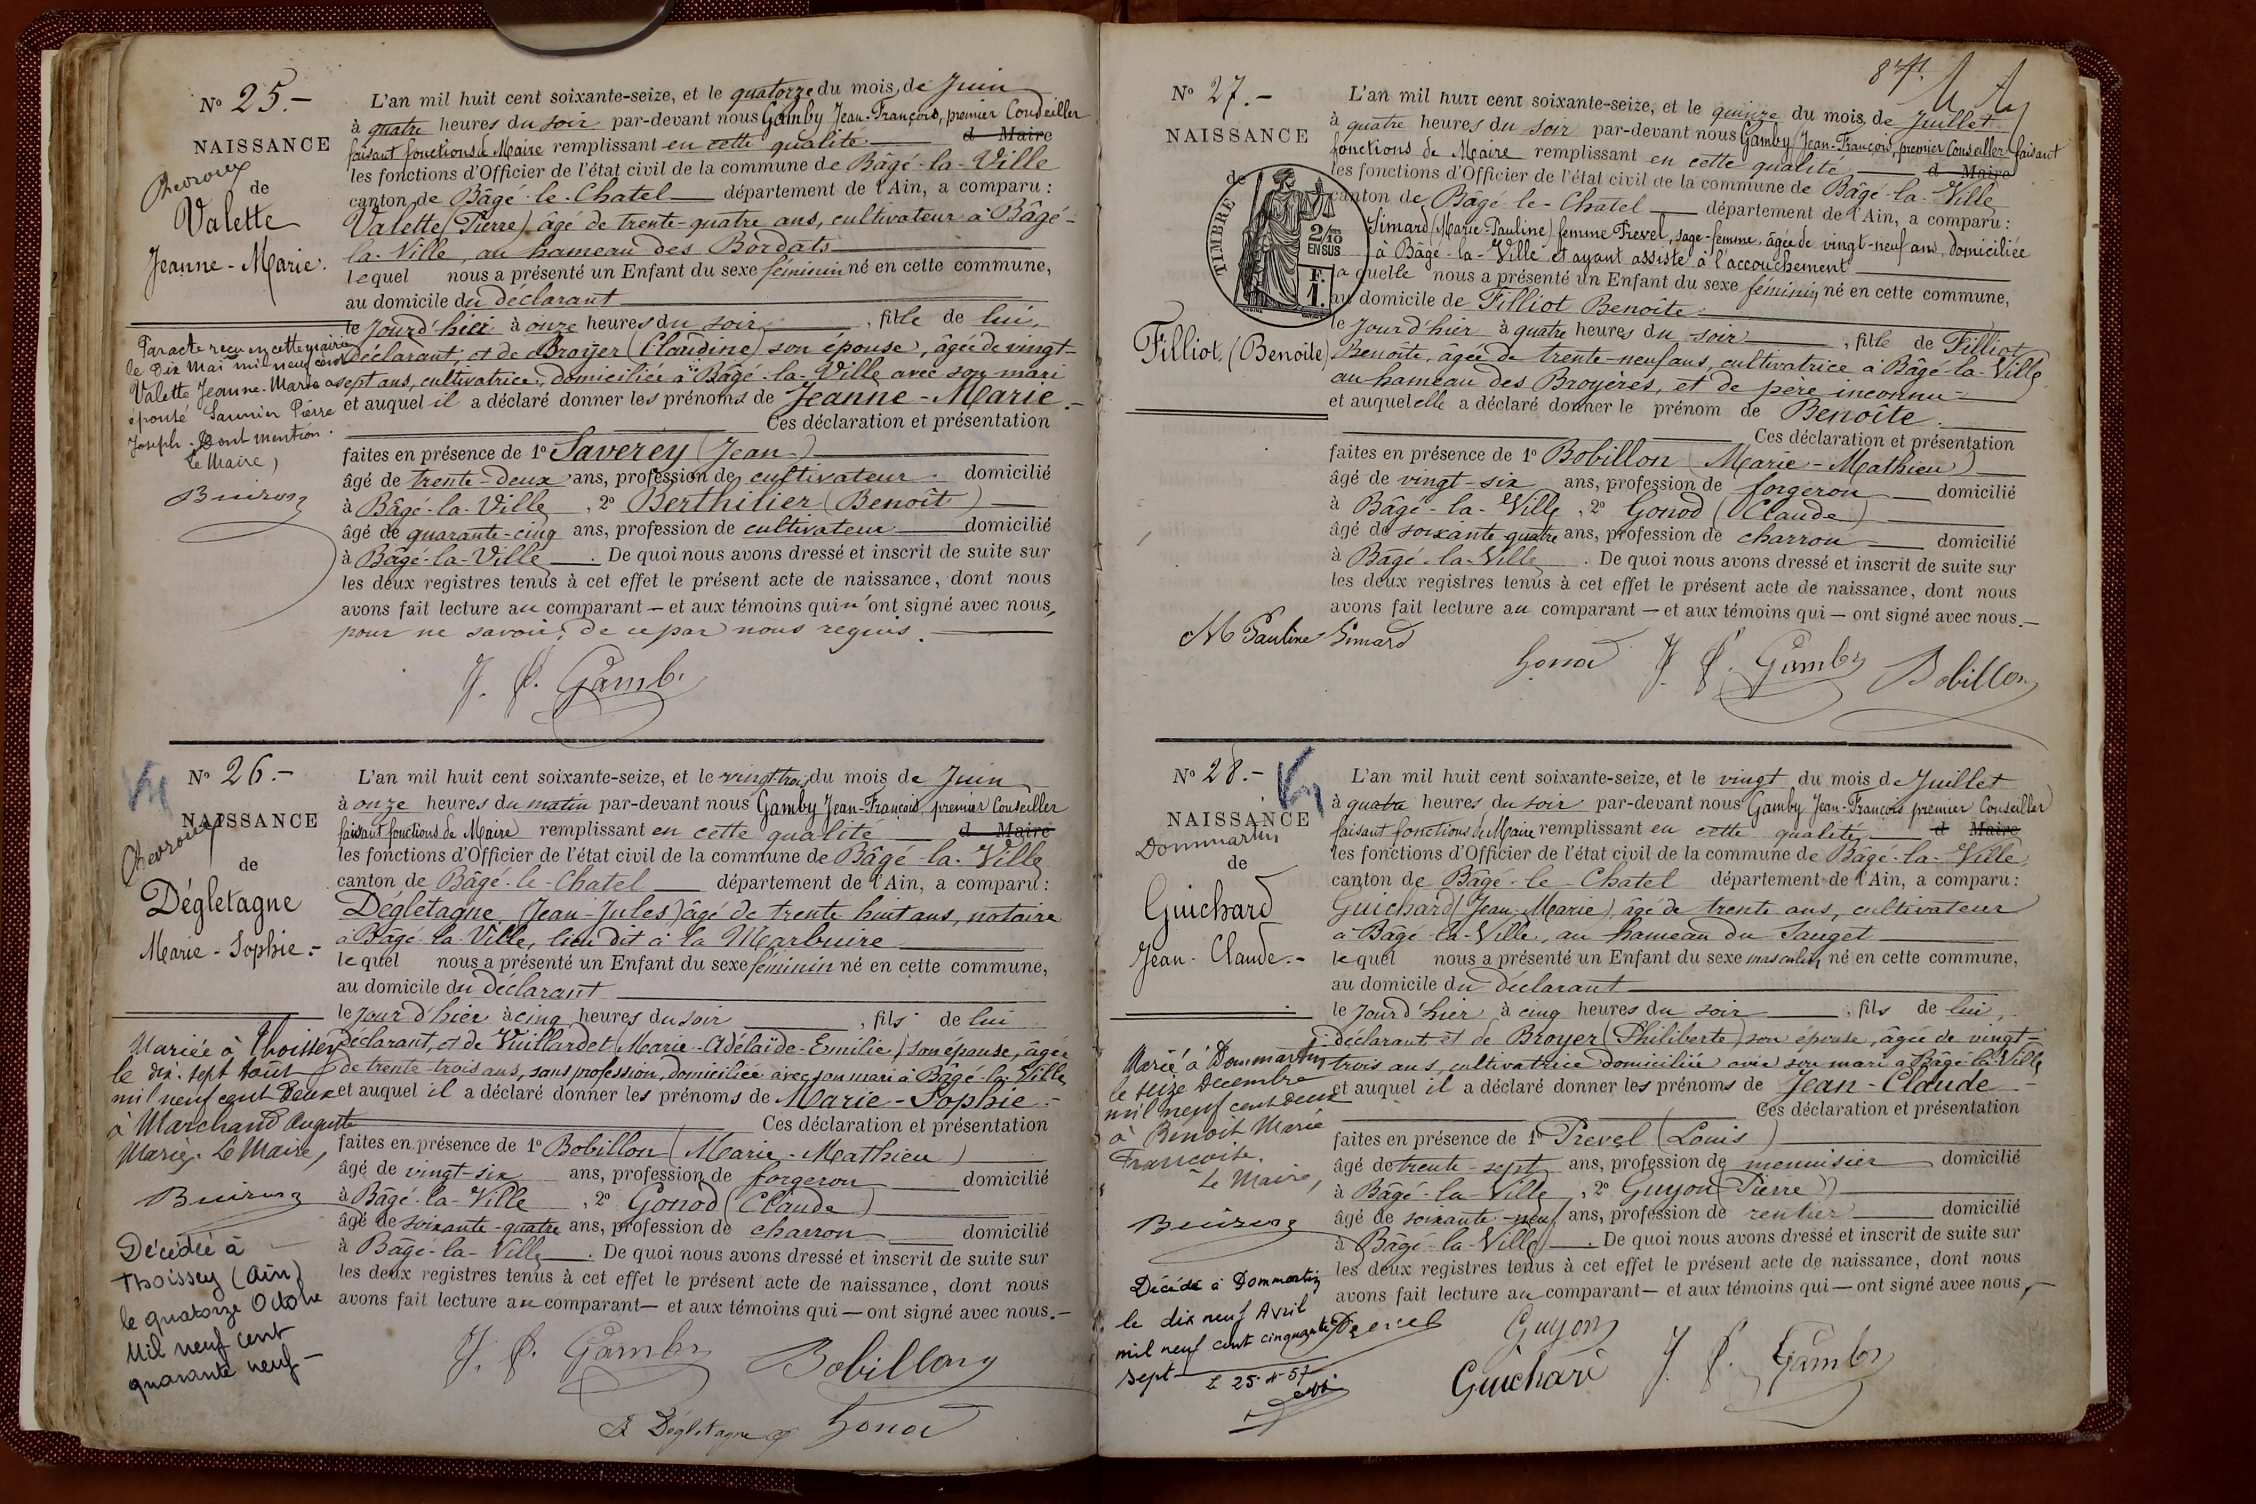 N° 25.-
NAISSANCE
Chevroux
de
Valette
Jeanne-Marie.
Par acte reçu en cette mairie
le dix Mai mil neuf cent
Valette Jeanne-Marie a
épousé Saunier Pierre
Joseph. Dont mention.
Le Maire,
L'an mil huit cent soixante-seize, et le quatorze du mois de Juin
à quatre heures du soir par-devant nous Gamby Jean-François, premier Conseiller
faisant fonctions de Maire remplissant en cette qualité d Maire
les fonctions d'Officier de l'état civil de la commune de Bâgé-la-Ville
canton de Bâgé-le-Chatel département de l'Ain, a comparu :
Valette (Pierre) âgé de trente-quatre ans, cultivateur à Bâgé-
la-Ville, au hameau des Bordats
lequel nous a présenté un Enfant du sexe féminin né en cette commune,
au domicile du déclarant
le jourd'hier à onze heures du soir, fille de lui,
déclarant, et de Broyer (Claudine) son épouse, âgée de vingt-
sept ans, cultivatrice, domiciliée à Bâgé-la-Ville avec son mari
et auquel il a déclaré donner les prénoms de Jeanne-Marie.-
Ces déclaration et présentation
faites en présence de 1° Saverey (Jean)
âgé de trente-deux ans, profession de cultivateur domicilié
à Bâgé-la-Ville, 2° Berthilier (Benoît)
âgé de quarante-cinq ans, profession de cultivateur domicilié
à Bâgé-la-Ville. De quoi nous avons dressé et inscrit de suite sur
les deux registres tenus à cet effet le présent acte de naissance, dont nous
avons fait lecture au comparant — et aux témoins qui n'ont signé avec nous,
pour ne savoir, de ce par nous requis.
J. F. Gamby
N° 26.-
NAISSANCE
Chevroux
de
Dégletagne
Marie-Sophie.-
Mariée à Thoissey
le dix-sept Aout
mil neuf cent deux
à Marchand Auguste
Marie. Le Maire,
Décédée à
Thoissey (Ain)
le quatorze Octobre
Mil neuf cent
quarante neuf-
L'an mil huit cent soixante-seize, et le vingt-trois du mois de Juin
à onze heures du matin par-devant nous Gamby Jean-François, premier Conseiller
faisant fonctions de Maire remplissant en cette qualité d Maire
les fonctions d'Officier de l'état civil de la commune de Bâgé-la-Ville
canton de Bâgé-le-Chatel département de l'Ain, a comparu :
Dégletagne (Jean-Jules) âgé de trente huit ans, notaire
à Bâgé-la-Ville, lieu dit à la Marbuire
lequel nous a présenté un Enfant du sexe féminin né en cette commune,
au domicile du déclarant
le jour d'hier à cinq heures du soir, fils de lui
déclarant, et de Vuillardet (Marie-Adélaïde-Emilie) son épouse, âgée
de trente-trois ans, sans profession, domiciliée avec son mari à Bâgé-la-Ville
et auquel il a déclaré donner les prénoms de Marie-Sophie.-
Ces déclaration et présentation
faites en présence de 1° Bobillon (Marie-Mathieu)
âgé de vingt-six ans, profession de forgeron domicilié
à Bâgé-la-Ville, 2° Gonod (Claude)
âgé de soixante-quatre ans, profession de charron domicilié
à Bâgé-la-Ville. De quoi nous avons dressé et inscrit de suite sur
les deux registres tenus à cet effet le présent acte de naissance, dont nous
avons fait lecture au comparant — et aux témoins qui — ont signé avec nous.-
J. F. Gamby Bobillon
Dégletagne Gonod
N° 27.-
NAISSANCE
de
TIMBRE
2/10
EN SUS
F.
1.
Filliot (Benoîte)
L'an mil huit cent soixante-seize, et le quinze du mois de Juillet
à quatre heures du soir par-devant nous Gamby (Jean-François, premier Conseiller faisant
fonctions de Maire remplissant en cette qualité d Maire
les fonctions d'Officier de l'état civil de la commune de Bâgé-la-Ville
canton de Bâgé-le-Chatel département de l'Ain, a comparu :
Simard (Marie-Pauline) femme Prevel, sage-femme, âgée de vingt-neuf ans, domiciliée
à Bâgé-la-Ville et ayant assisté à l'accouchement
laquelle nous a présenté un Enfant du sexe féminin né en cette commune,
au domicile de Filliot Benoîte
le jour d'hier à quatre heures du soir, fille de Filliot
Benoîte, âgée de trente-neuf ans, cultivatrice à Bâgé-la-Ville
au hameau des Broyères, et de père inconnu
et auquel elle a déclaré donner le prénom de Benoîte.
Ces déclaration et présentation
faites en présence de 1° Bobillon (Marie-Mathieu)
âgé de vingt-six ans, profession de forgeron domicilié
à Bâgé-la-Ville, 2° Gonod (Claude)
âgé de soixante quatre ans, profession de charron domicilié
à Bâgé-la-Ville. De quoi nous avons dressé et inscrit de suite sur
les deux registres tenus à cet effet le présent acte de naissance, dont nous
avons fait lecture au comparant — et aux témoins qui — ont signé avec nous.-
M Pauline Simard
Gonod J. F. Gamby Bobillon
N° 28.-
NAISSANCE
Dommartin
de
Guichard
Jean-Claude.-
Marié à Dommartin
le seize Decembre
mil neuf cent deux
à Benoit Marie
Françoise.
Le Maire,
Décédé à Dommartin
le dix neuf Avril
mil neuf cent cinquante
sept
L 25-4-57
L'an mil huit cent soixante-seize, et le vingt du mois de Juillet
à quatre heures du soir par-devant nous Gamby Jean-François premier Conseiller
faisant fonctions de Maire remplissant en cette qualité d Maire
les fonctions d'Officier de l'état civil de la commune de Bâgé-la-Ville
canton de Bâgé-le-Chatel département de l'Ain, a comparu :
Guichard (Jean-Marie), âgé de trente ans, cultivateur
à Bâgé-la-Ville, au hameau du Sauget
lequel nous a présenté un Enfant du sexe masculin né en cette commune,
au domicile du déclarant
le jour d'hier à cinq heures du soir, fils de lui,
déclarant et de Broyer (Philiberte) son épouse, âgée de vingt-
trois ans, cultivatrice domiciliée avec son mari à Bâgé-la-Ville
et auquel il a déclaré donner les prénoms de Jean-Claude-
Ces déclaration et présentation
faites en présence de 1° Prevel (Louis)
âgé de trente-sept ans, profession de menuisier domicilié
à Bâgé-la-Ville, 2° Guyon (Pierre)
âgé de soixante-neuf ans, profession de rentier domicilié
à Bâgé-la-Ville. De quoi nous avons dressé et inscrit de suite sur
les deux registres tenus à cet effet le présent acte de naissance, dont nous
avons fait lecture au comparant — et aux témoins qui — ont signé avec nous.
Prevel Guyon
Guichard J. F. Gamby